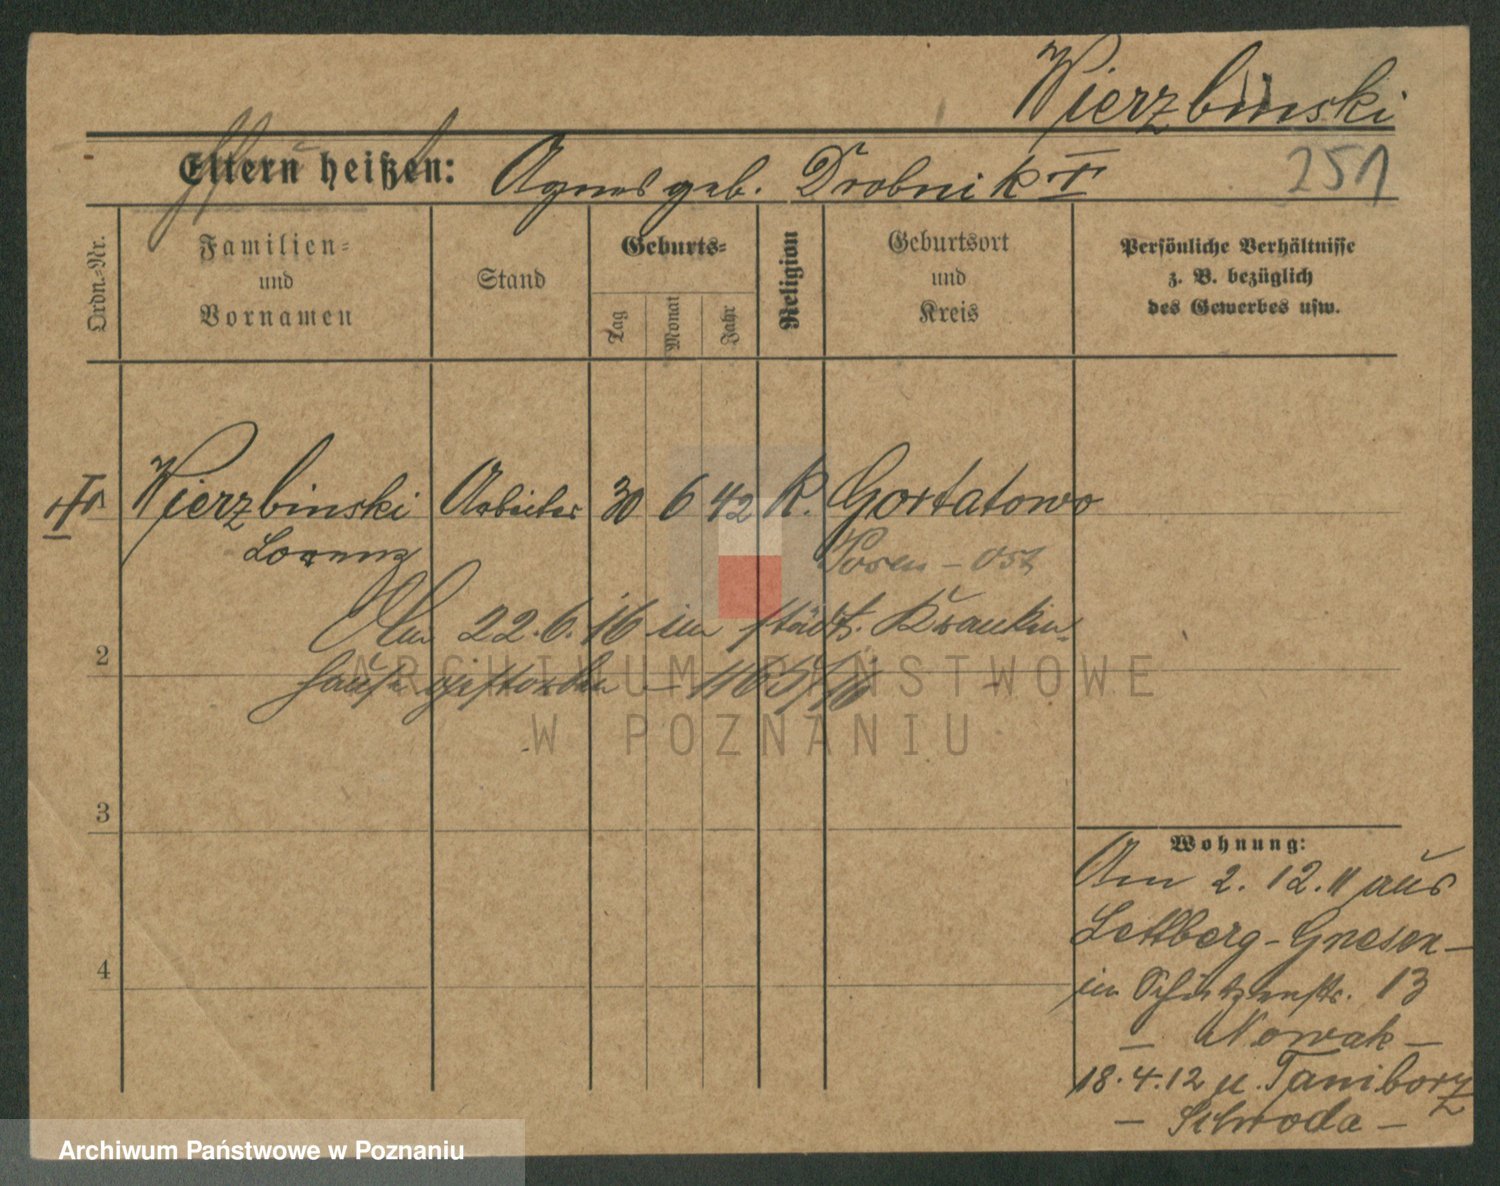 Wierzbinski
251
Eltern heißen: Agnes geb. Drobnik †
Ordn.-Nr.
Familien-
und
Vornamen
Stand
Geburts-
Tag
Monat
Jahr
Religion
Geburtsort
und
Kreis
Persönliche Verhältnisse
z. B. bezüglich
des Gewerbes usw.
† 1 Wierzbinski Arbeiter 30 6 42 K. Gortatowo
Lorenz Posen - Ost
Am 22.6.16 im städt. Kranken-
hause gestorben
2
3
4
Wohnung:
Am 2.12.11 aus
Lettberg - Gnesen -
in Schützenstr. 13
- Nowak -
18.4.12 n. Taniborz
- Schroda -
ARCHIWUM PAŃSTWOWE
W POZNANIU
Archiwum Państwowe w Poznaniu